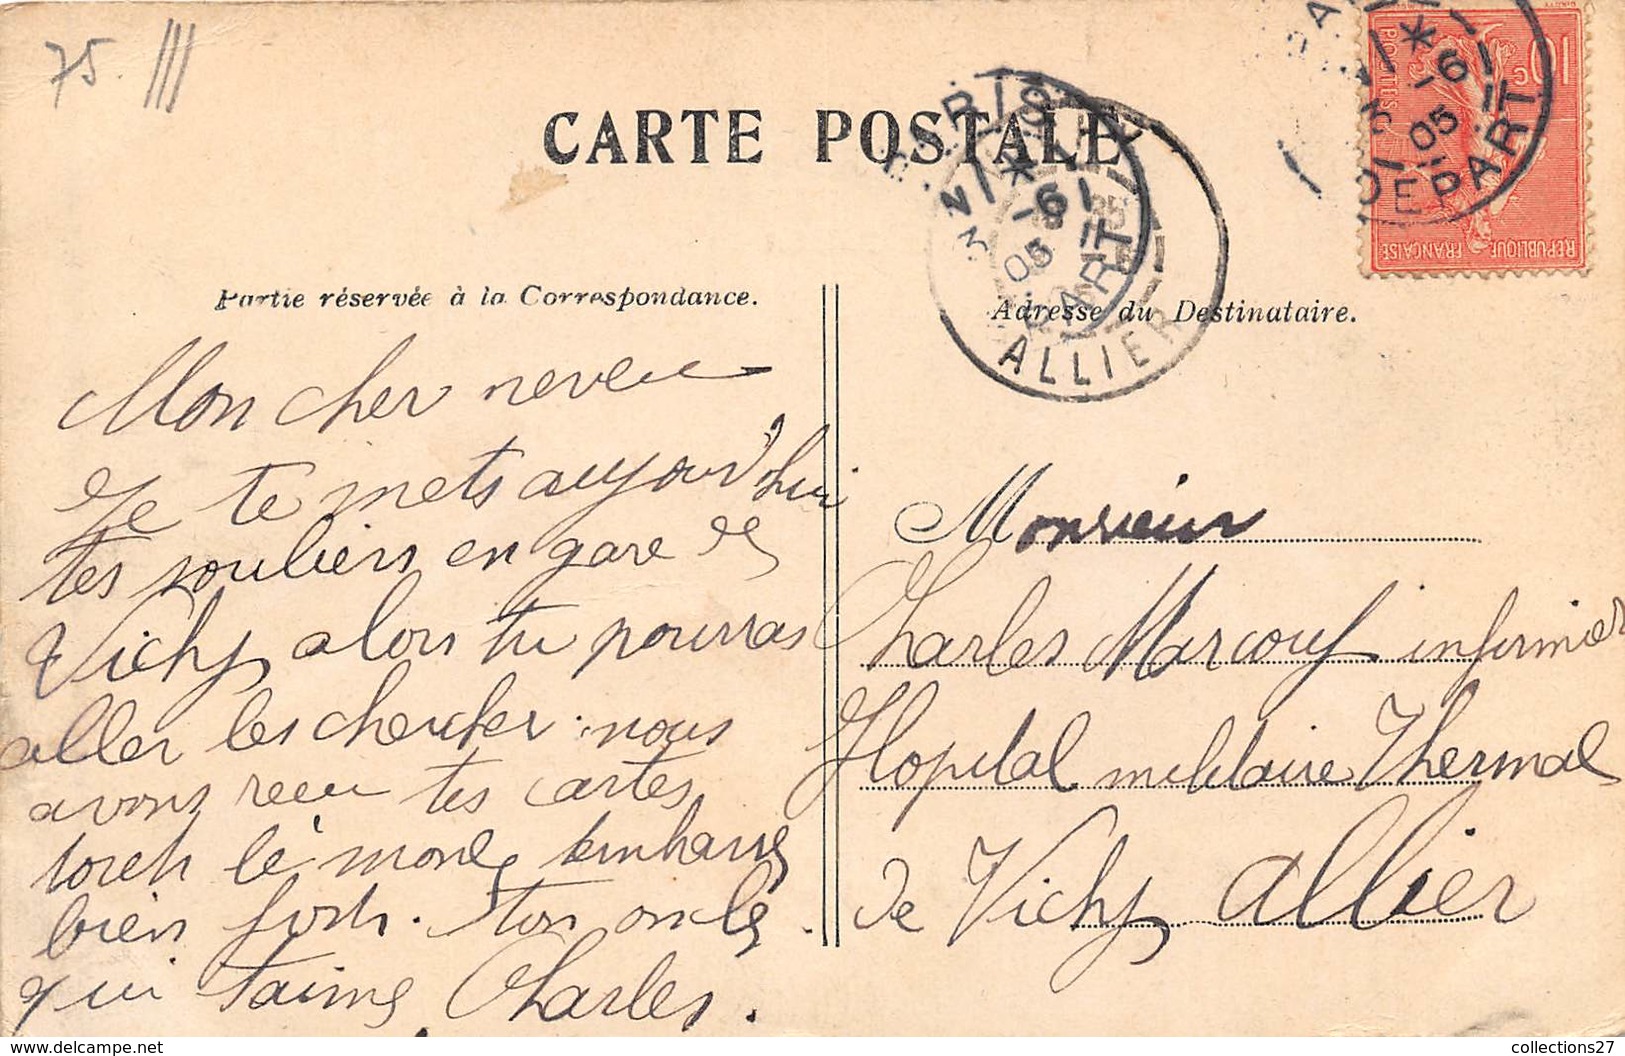 75. ///
CARTE POSTALE
PARIS
DEPART
ALLIER
10 c
POSTES
REPUBLIQUE FRANCAISE
PARIS
6 - 11
05
DEPART
Partie réservée à la Correspondance.
Mon cher neveu
Je te mets aujourd'hui
tes souliers en gare de
Vichy, alors tu pourras
aller les chercher. nous
avons reçu tes cartes
tout le monde t'embrasse
bien fort. ton oncle
qui t'aime Charles.
Adresse du Destinataire.
Monsieur
Charles Marcouf infirmier
Hopital militaire Thermal
de Vichy Allier
https://www.delcampe.net
collections27